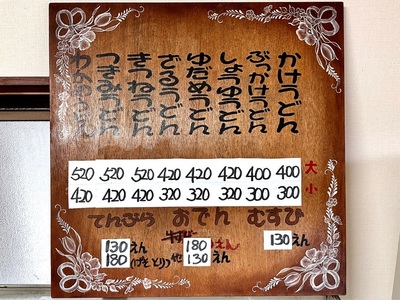 かけうどん
ぶっかけうどん
しょうゆうどん
ゆだめうどん
ざるうどん
きつねうどん
つきみうどん
わかめうどん
520 520 520 420 420 420 400 400 大
420 420 420 320 320 320 300 300 小
てんぷら おでん むすび
130えん 180えん 130えん
180(げそ とり) 他130えん